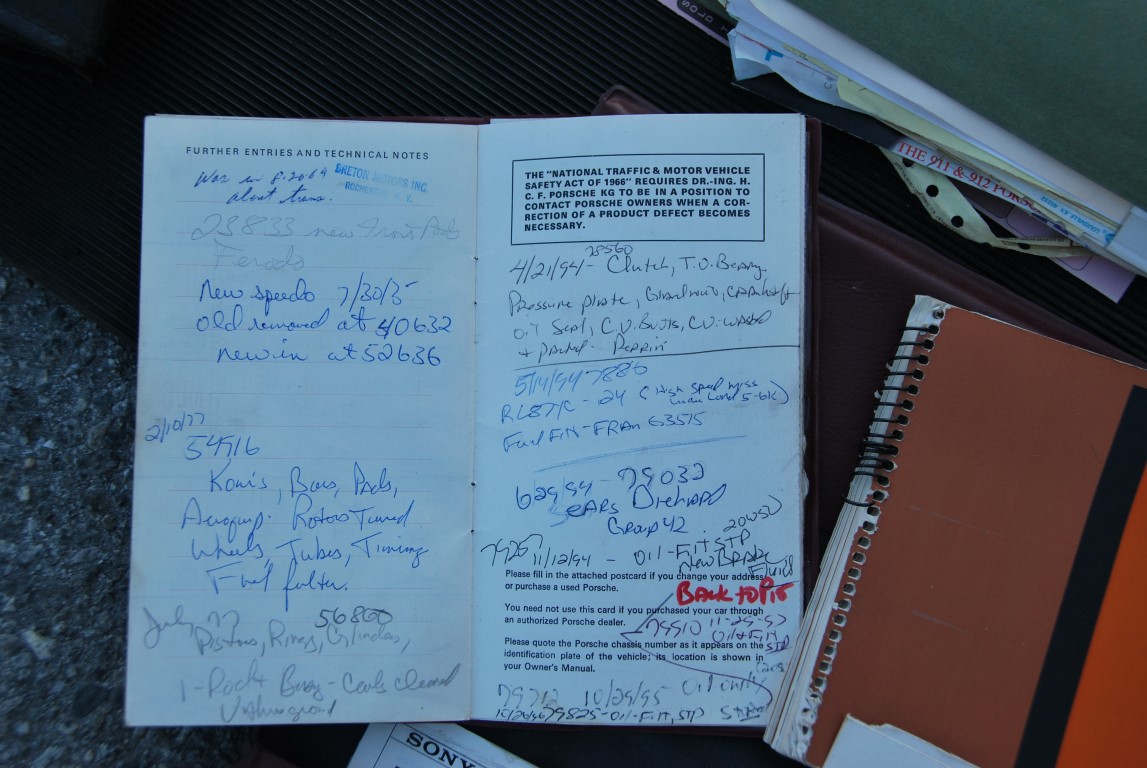 FURTHER ENTRIES AND TECHNICAL NOTES
Was in 8-20-69
about trans.
BRETON MOTORS INC.
23833 new Front Pads
Ferodo
New speedo 7/30/75
old removed at 40632
new in at 52636
2/10/77
54916
Konis, Bars, Pads,
Aeroquip. Rotors Turned
Wheels, Tubes, Timing
Fuel filter.
July 77 56860
Pistons, Rings, Cylinders,
1-Rock Bushing - Carbs cleaned
Valve grind
THE "NATIONAL TRAFFIC & MOTOR VEHICLE
SAFETY ACT OF 1966" REQUIRES DR.-ING. H.
C. F. PORSCHE KG TO BE IN A POSITION TO
CONTACT PORSCHE OWNERS WHEN A COR-
RECTION OF A PRODUCT DEFECT BECOMES
NECESSARY.
4/21/94 - 78560 Clutch, T.O. Bearing
Pressure plate, crankshaft
oil Seal, C.V. Boots, C.V. washed
+ packed. Perrin
5/14/94 7886
(High Speed miss
under Load 5-6K)
Fuel Filt - FRAM
6/29/94 - 79032
SEARS Diehard
Group 42
79267 11/12/94 - Oil-Filt STP 20W50
New Brake
Fluid
Please fill in the attached postcard if you change your address
or purchase a used Porsche.
BACK TO P15
You need not use this card if you purchased your car through
an authorized Porsche dealer.
79910 11-29-97
Oil+Filt
STP
Please quote the Porsche chassis number as it appears on the
identification plate of the vehicle; its location is shown in
your Owner's Manual.
79712 10/29/95 Oil only
10/26/96 79825 - Oil-Filt, STP
THE 911 & 912 PORS
SONY